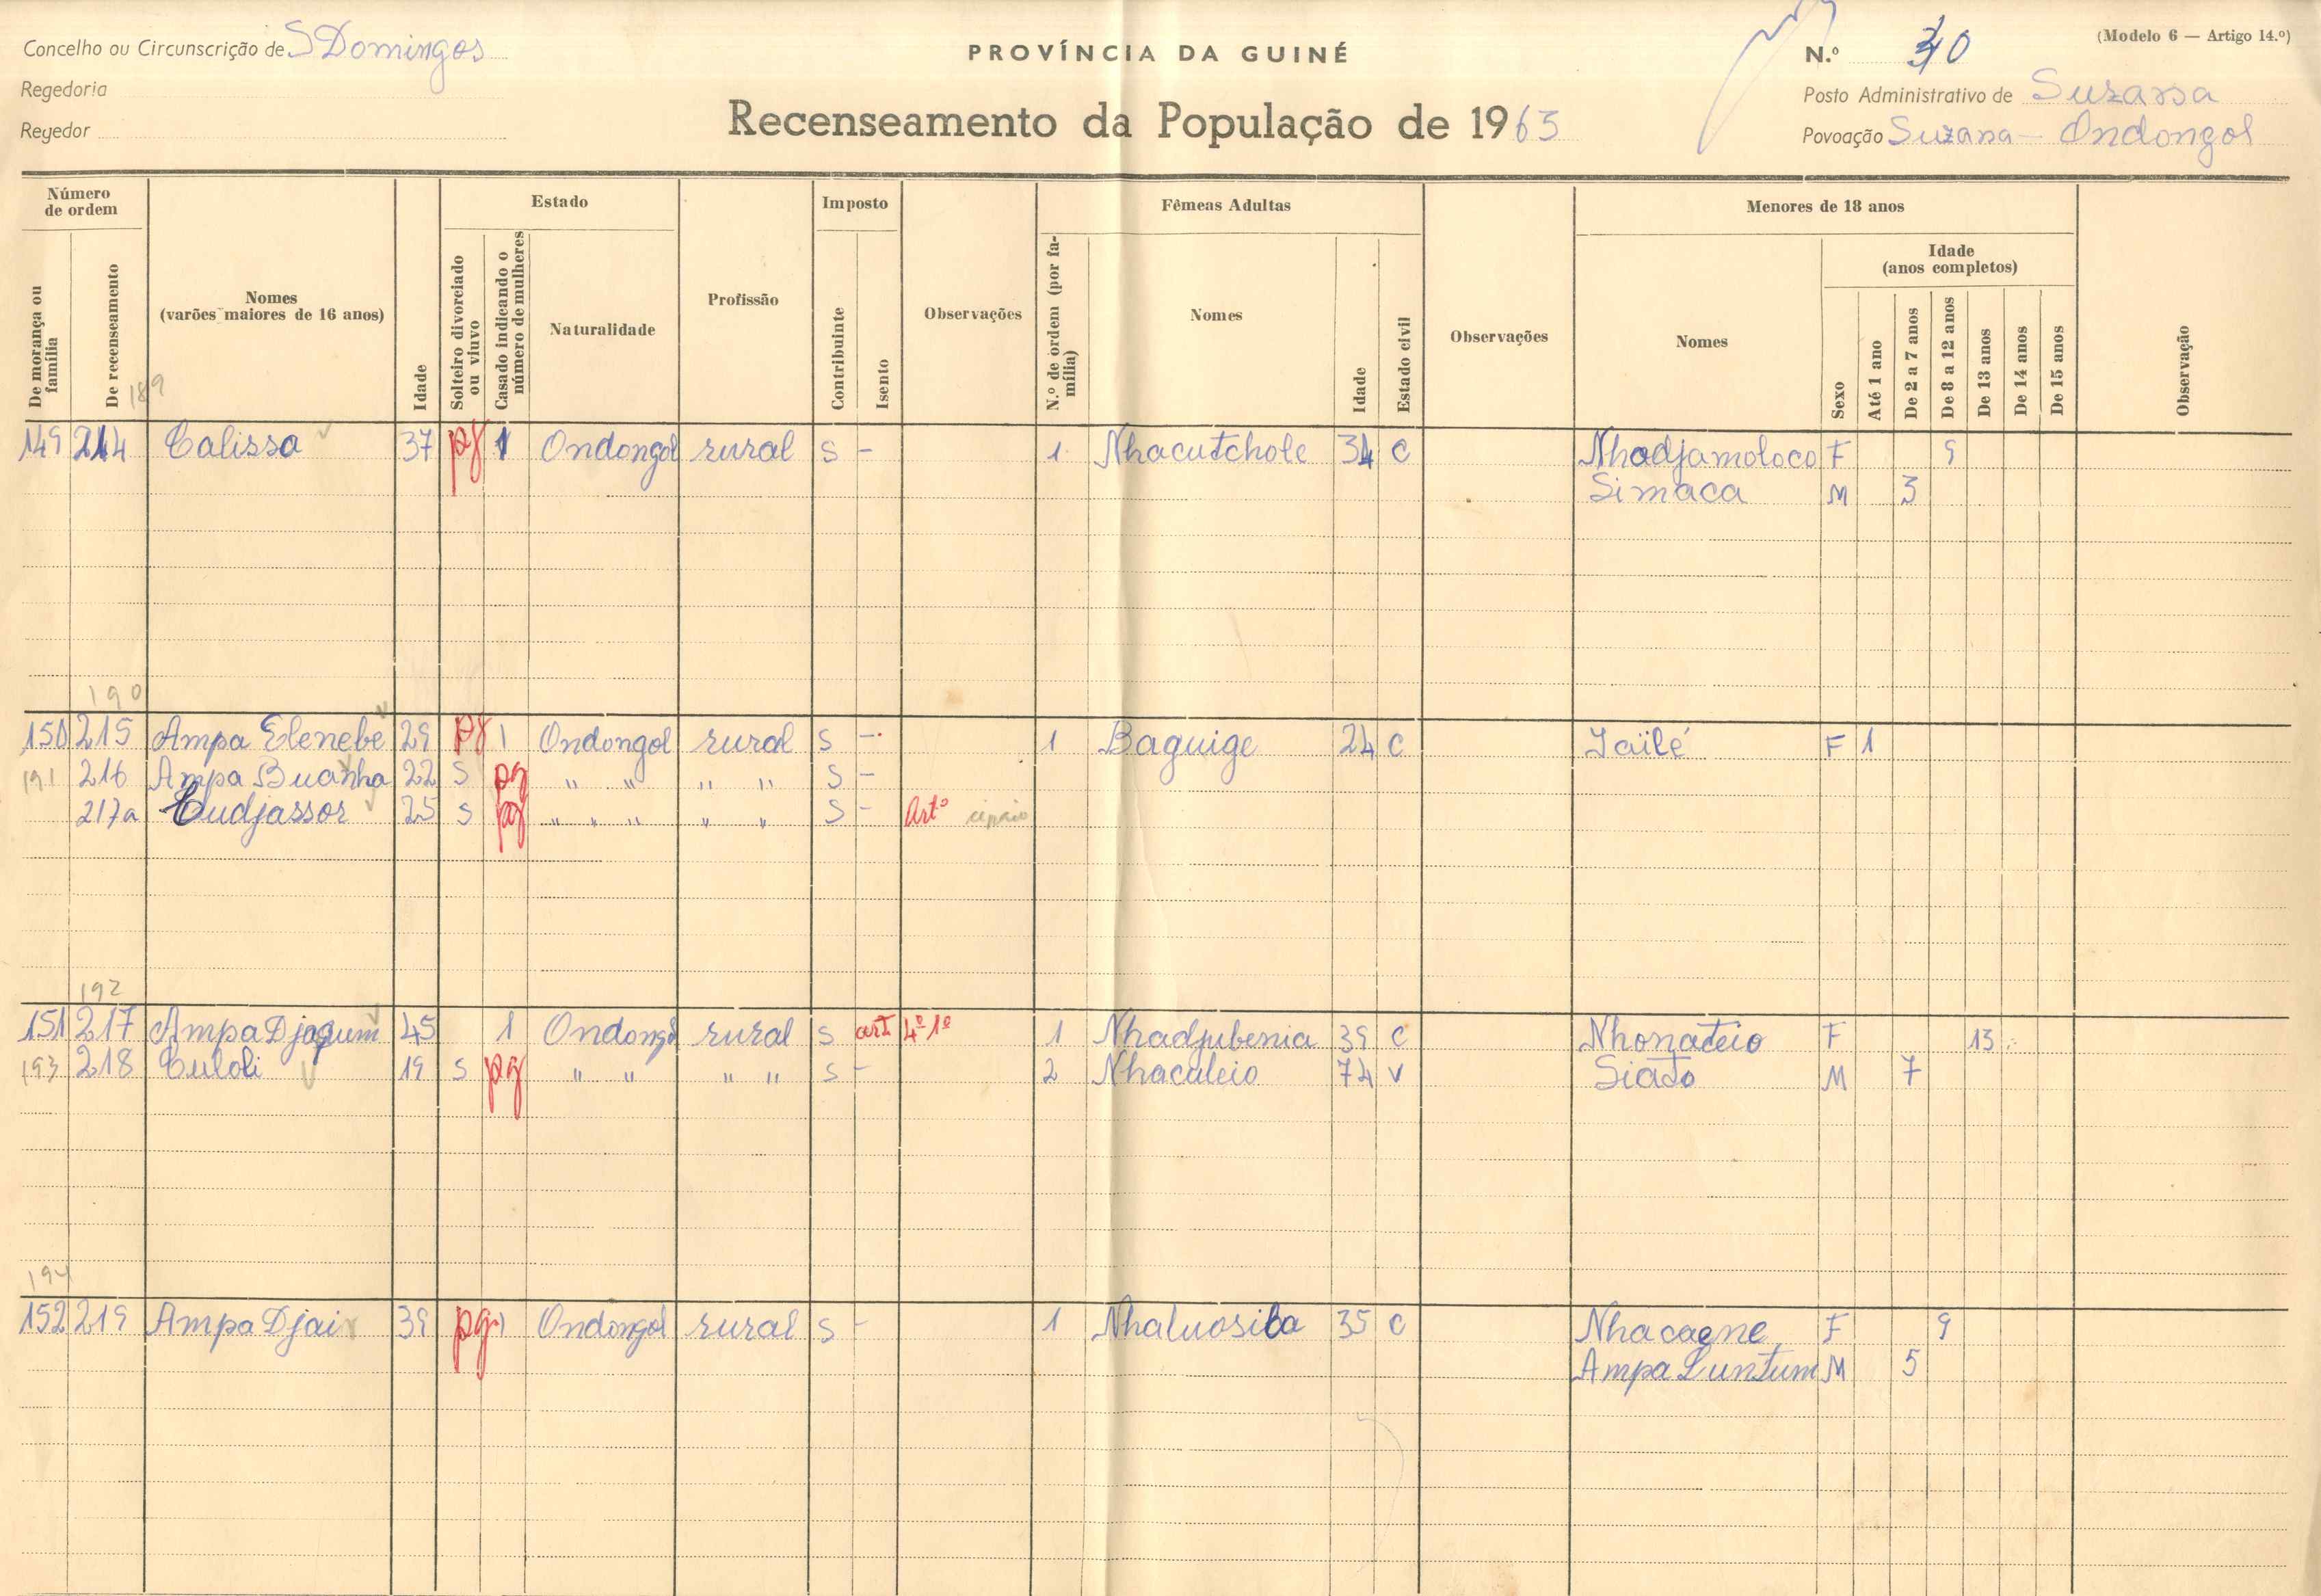 Concelho ou Circunscrição de S Domingos
PROVÍNCIA DA GUINÉ
N.º 40
(Modelo 6 — Artigo 14.º)
Regedoria
Posto Administrativo de Suzana
Regedor
Recenseamento da População de 1963
Povoação Suzana – Ondongol
Número de ordem
Estado
Imposto
Fêmeas Adultas
Menores de 18 anos
De morança ou família
De recenseamento
Nomes (varões maiores de 16 anos)
Idade
Solteiro divorciado ou viuvo
Casado indicando o número de mulheres
Naturalidade
Profissão
Contribuinte
Isento
Observações
N.º de ordem (por família)
Nomes
Idade
Estado civil
Observações
Nomes
Sexo
Idade (anos completos)
Até 1 ano
De 2 a 7 anos
De 8 a 12 anos
De 13 anos
De 14 anos
De 15 anos
Observação
189
149 214 Calissa 37 pg 1 Ondongol rural s - 1 Nhacutchole 34 C Nhadjamoloco F 9
Simaca M 3
190
150 215 Ampa Elenebe 29 pg 1 Ondongol rural s - 1 Baguige 24 C Jaïlé F 1
191 216 Ampa Buanha 22 s pg " " " " s -
217a Cudjassor 25 s pg " " " " " s - Artº cipaio
192
151 217 Ampa Djogum 45 1 Ondongol rural s art 4º 1º 1 Nhadjubenia 39 C Nhonateio F 13
193 218 Culoli 19 s pg " " " " s - 2 Nhacaleio 74 V Siato M 7
194
152 219 Ampa Djai 39 pg 1 Ondongol rural s - 1 Nhaluosiba 35 C Nhacaene F 9
Ampa Luntum M 5